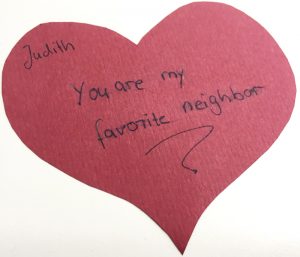 Judith
You are my
favorite neighbor